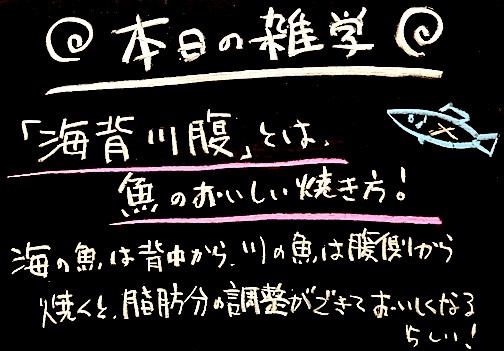 本日の雑学
「海背川腹」とは、
魚のおいしい焼き方！
海の魚は背中から、川の魚は腹側から
焼くと、脂肪分の調整ができておいしくなる
らしい！